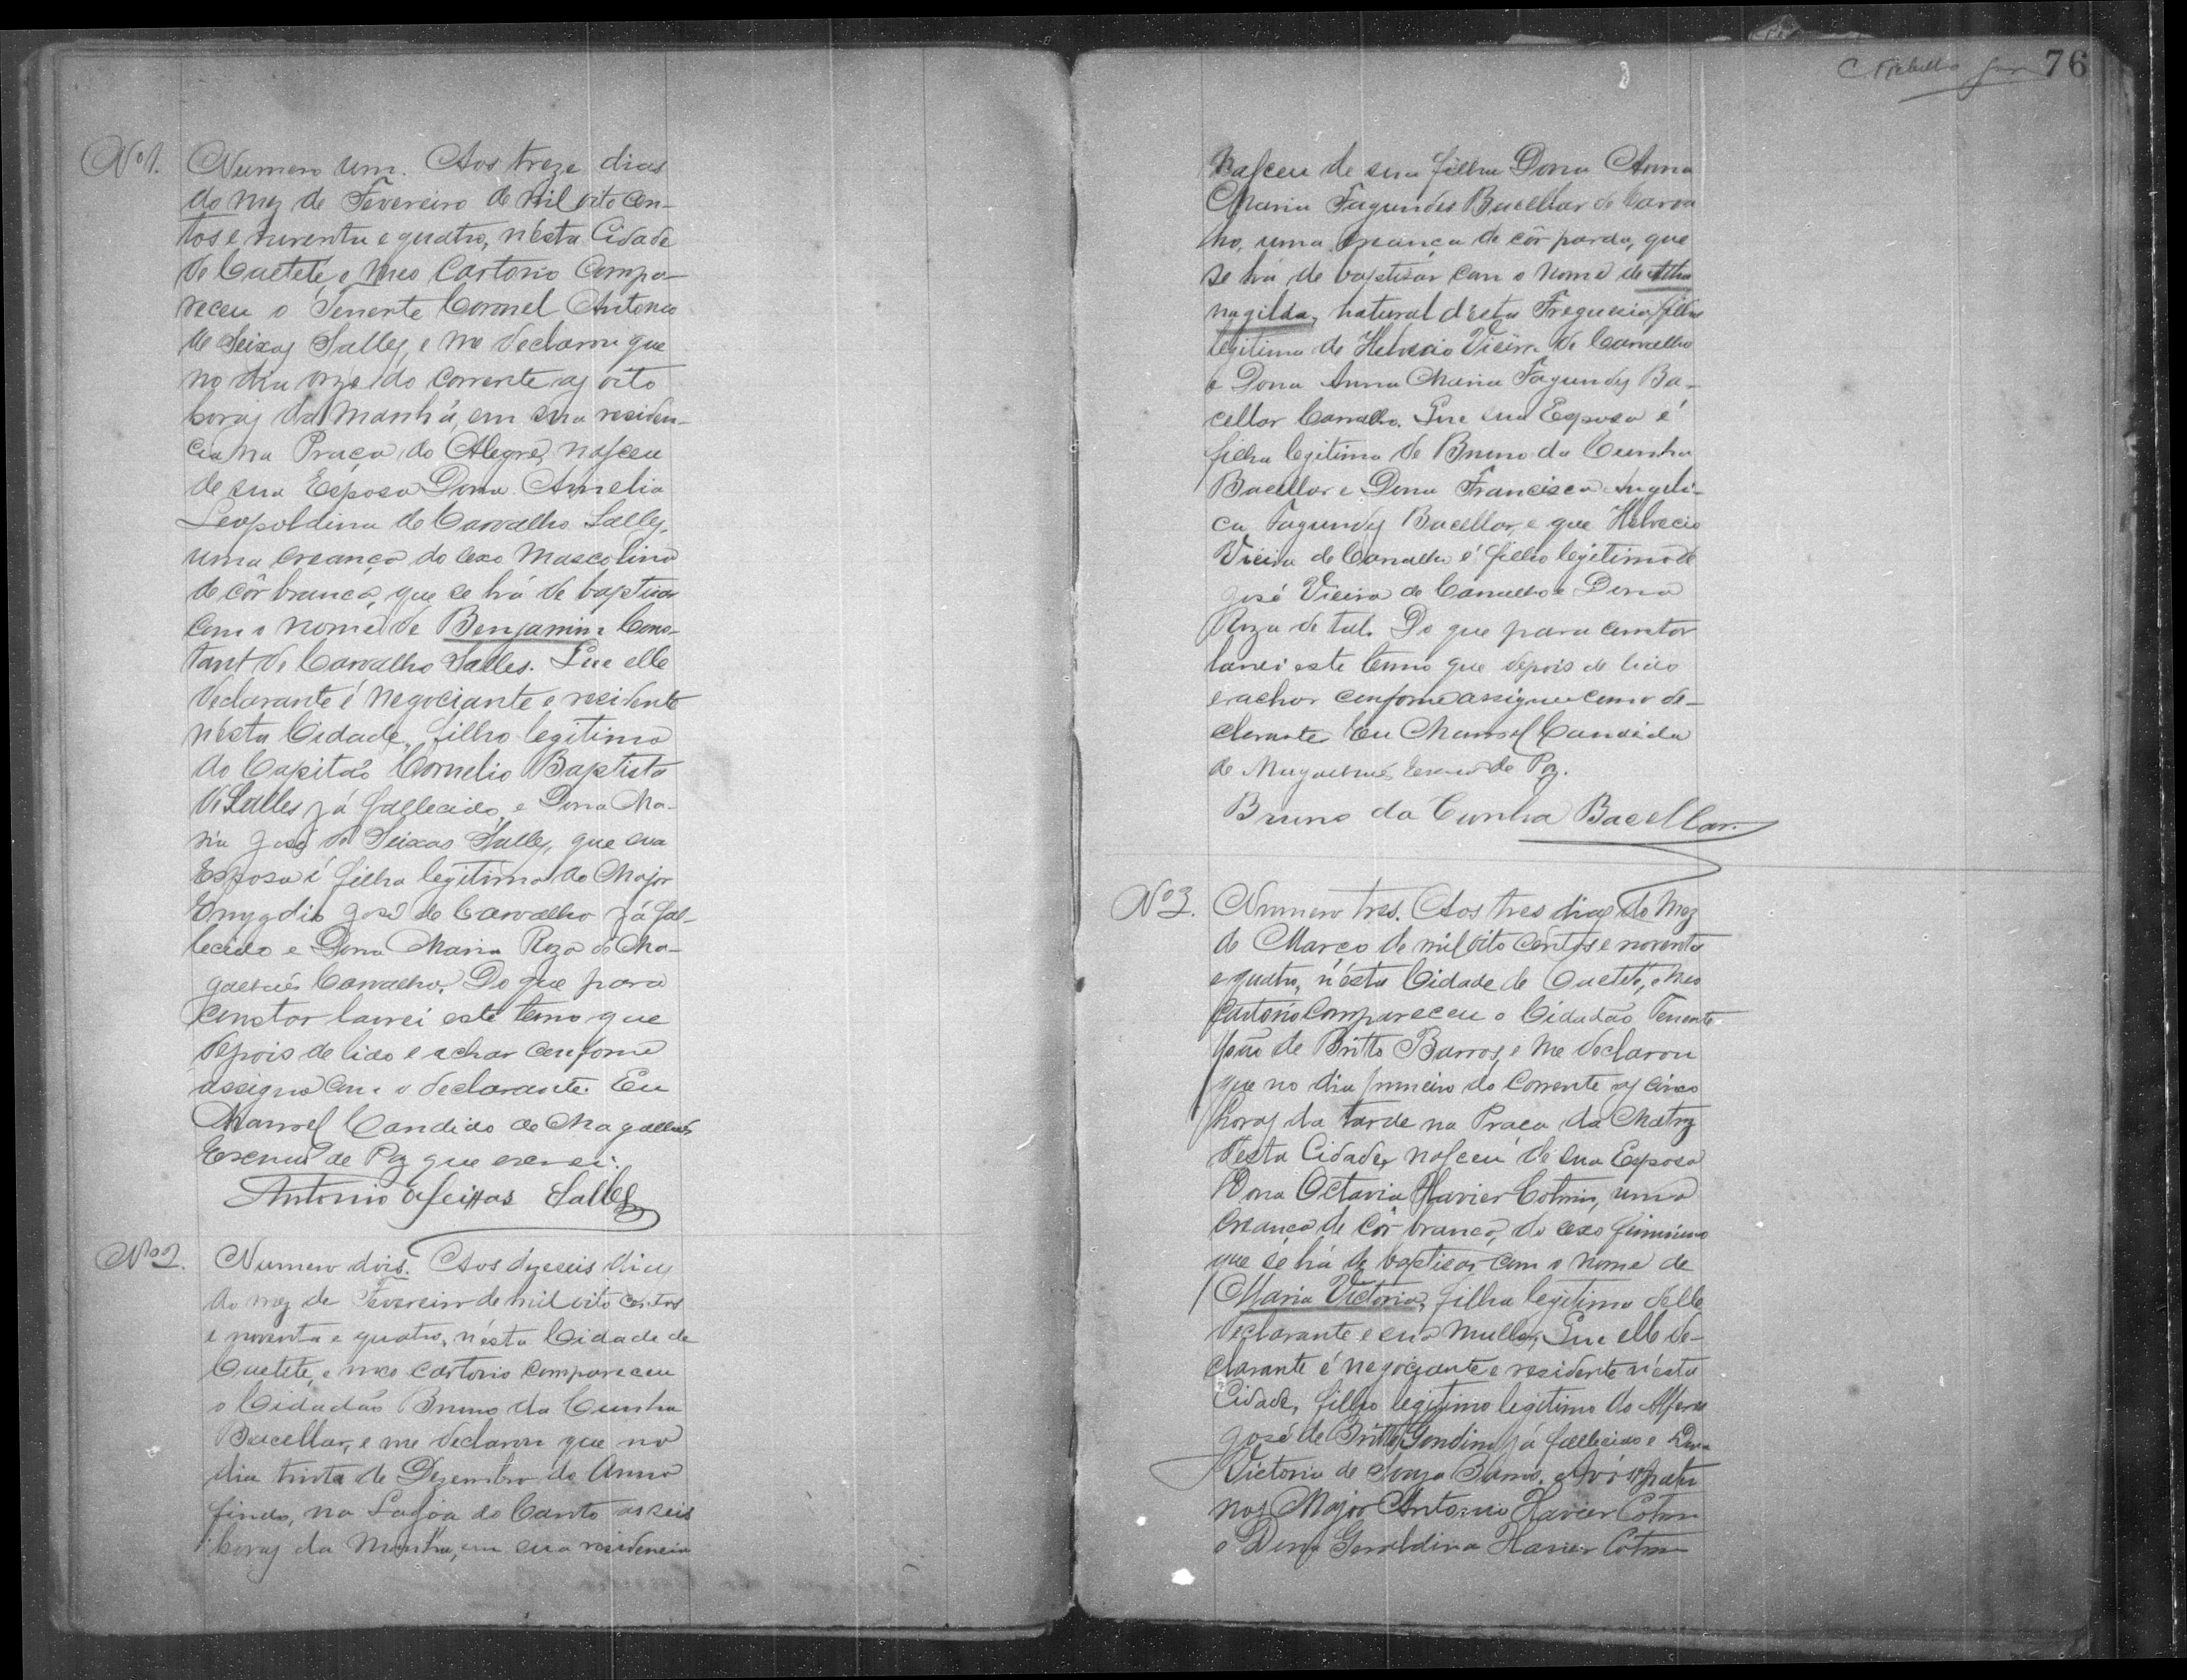 Nº 1.
Numero um. Aos treze dias
do mez de Fevereiro de mil oito cen-
tos e noventa e quatro, n'ésta Cidade
de Caeteté, e meo Cartorio Compa-
receu o Tenente Coronel Antonio
de Seixas Salles, e me declarou que
no dia onze do corrente as oito
horas da manhã, em sua residen-
cia na Praça do Alegre, nasceu
de sua Esposa Dona Amelia
Leopoldina de Carvalho Salles,
uma creança do sexo masculino
de côr branca, que se há de baptisar
com o nome de Benjamim Cons-
tant de Carvalho Salles. Que elle
declarante é negociante e residente
n'ésta Cidade, filho legitimo
do Capitão Cornelio Baptista
de Salles já fallecido, e Dona Ma-
ria José de Seixas Salles, que sua
Esposa é filha legitima do Major
Emygdio José de Carvalho já fal-
lecido e Dona Maria Roza de Ma-
galhães Carvalho. Do que para
constar lavrei este termo que
depois de lido e achar conforme
assigna com o declarante. Eu
Manoel Candido de Magalhães
Escrivão de Paz que escrevi.
Antonio de Seixas Salles
Nº 2.
Numero dois. Aos dezeseis dias
do mez de Fevereiro de mil oito centos
e noventa e quatro, n'ésta Cidade de
Caeteté, e meo cartorio compareceu
o Cidadão Bruno da Cunha
Bacellar, e me declarou que no
dia trinta de Dezembro do Anno
findo, na Lagôa do Canto as seis
horas da manhã, em sua residencia
76
nasceu de sua filha Dona Anna
Maria Fagundes Bacellar de Carva
lho, uma creança de côr parda, que
se há de baptisar com o nome de Atha
nagilda, natural d'esta Freguesia, filha
legitima de Helvecio Vieira de Carvalho
e Dona Anna Maria Fagundes Ba-
cellar Carvalho. Que sua Esposa é
filha legitima de Bruno da Cunha
Bacellar e Dona Francisca Angeli-
ca Fagundes Bacellar, e que Helvecio
Vieira de Carvalho é filho legitimo de
José Vieira de Carvalho e Dona
Roza de tal. Do que para constar
lavrei este termo que depois de lido
e achar conforme assigna como de-
clarante. Eu Manoel Candido
de Magalhães, Escrivão de Paz.
Bruno da Cunha Bacellar.
Nº 3.
Numero tres. Aos tres dias do mez
de Março de mil oito centos e noventa
e quatro, n'ésta Cidade de Caeteté, e meo
Cartorio compareceu o Cidadão Tenente
João de Britto Barros, e me declarou
que no dia primeiro do corrente as cinco
horas da tarde na Praça da Matriz
d'esta Cidade, nasceu de sua Esposa
Dona Octavia Xavier Cotrim, uma
creança de côr branca, do sexo feminino
que se há de baptisar com o nome de
Maria Victoria, filha legitima d'elle
declarante e sua mulher, Que elle de-
clarante é negociante e residente n'ésta
Cidade, filho legitimo legitimo do Alferes
José de Britto Gondim já fallecido e Dona
Victoria de Souza Barros. Avós mater
nos Major Antonio Xavier Cotrim
e Dona Geraldina Xavier Cotrim